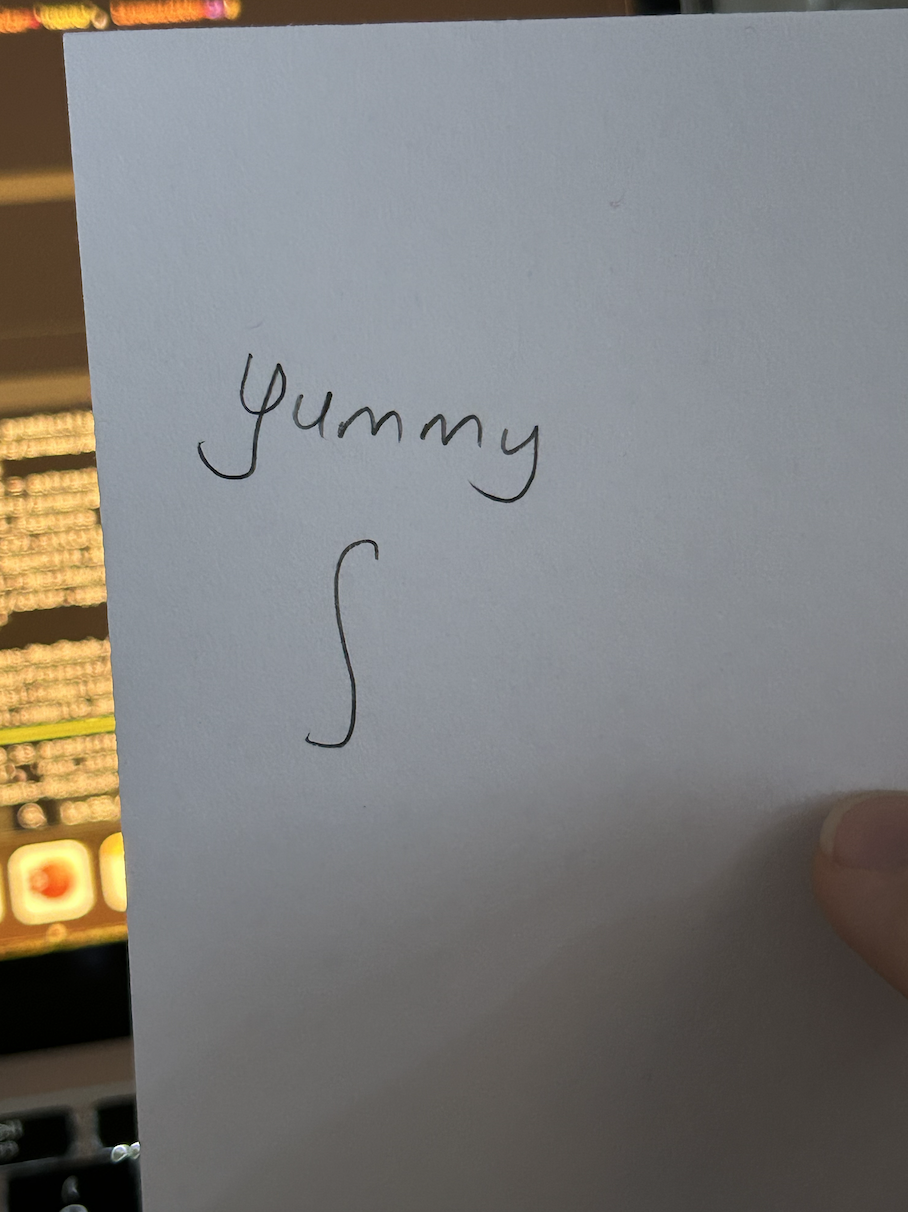 yummy
∫